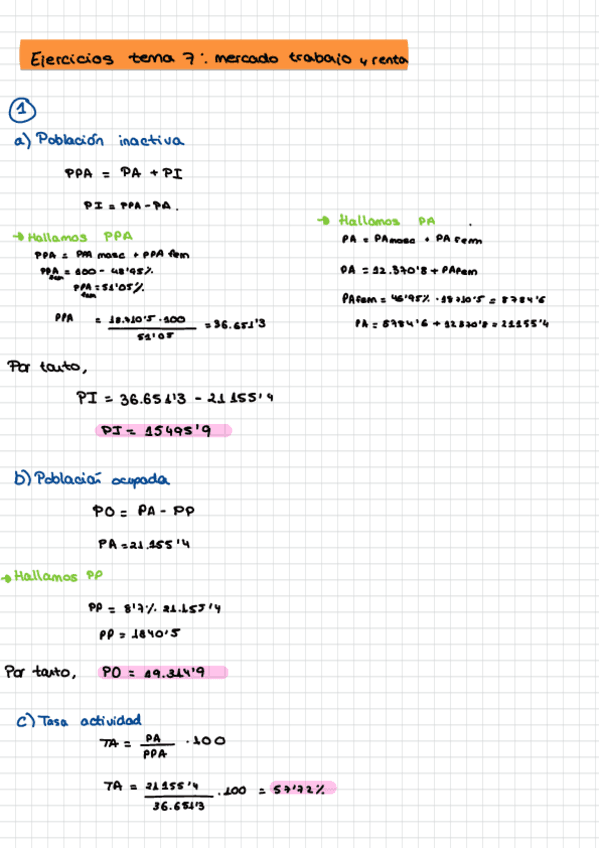 Ejercicios tema 7: mercado trabajo y renta
1
a) Población inactiva
PPA = PA + PI
PI = PPA - PA.
→ Hallamos PPA
PPA = PPA masc + PPA fem
PPA fem = 100 - 48'95%
PPA fem = 51'05%
PPA = 18.710'5 · 100 / 51'05 = 36.651'3
→ Hallamos PA
PA = PA masc + PA fem
PA = 12.370'8 + PA fem
PA fem = 46'95% · 18710'5 = 8784'6
PA = 8784'6 + 12370'8 = 21155'4
Por tanto,
PI = 36.651'3 - 21155'4
PI = 15495'9
b) Población ocupada
PO = PA - PP
PA = 21.155'4
→ Hallamos PP
PP = 8'7% 21.155'4
PP = 1840'5
Por tanto, PO = 19.314'9
c) Tasa actividad
TA = PA / PPA · 100
TA = 21155'4 / 36.651'3 · 100 = 57'72%